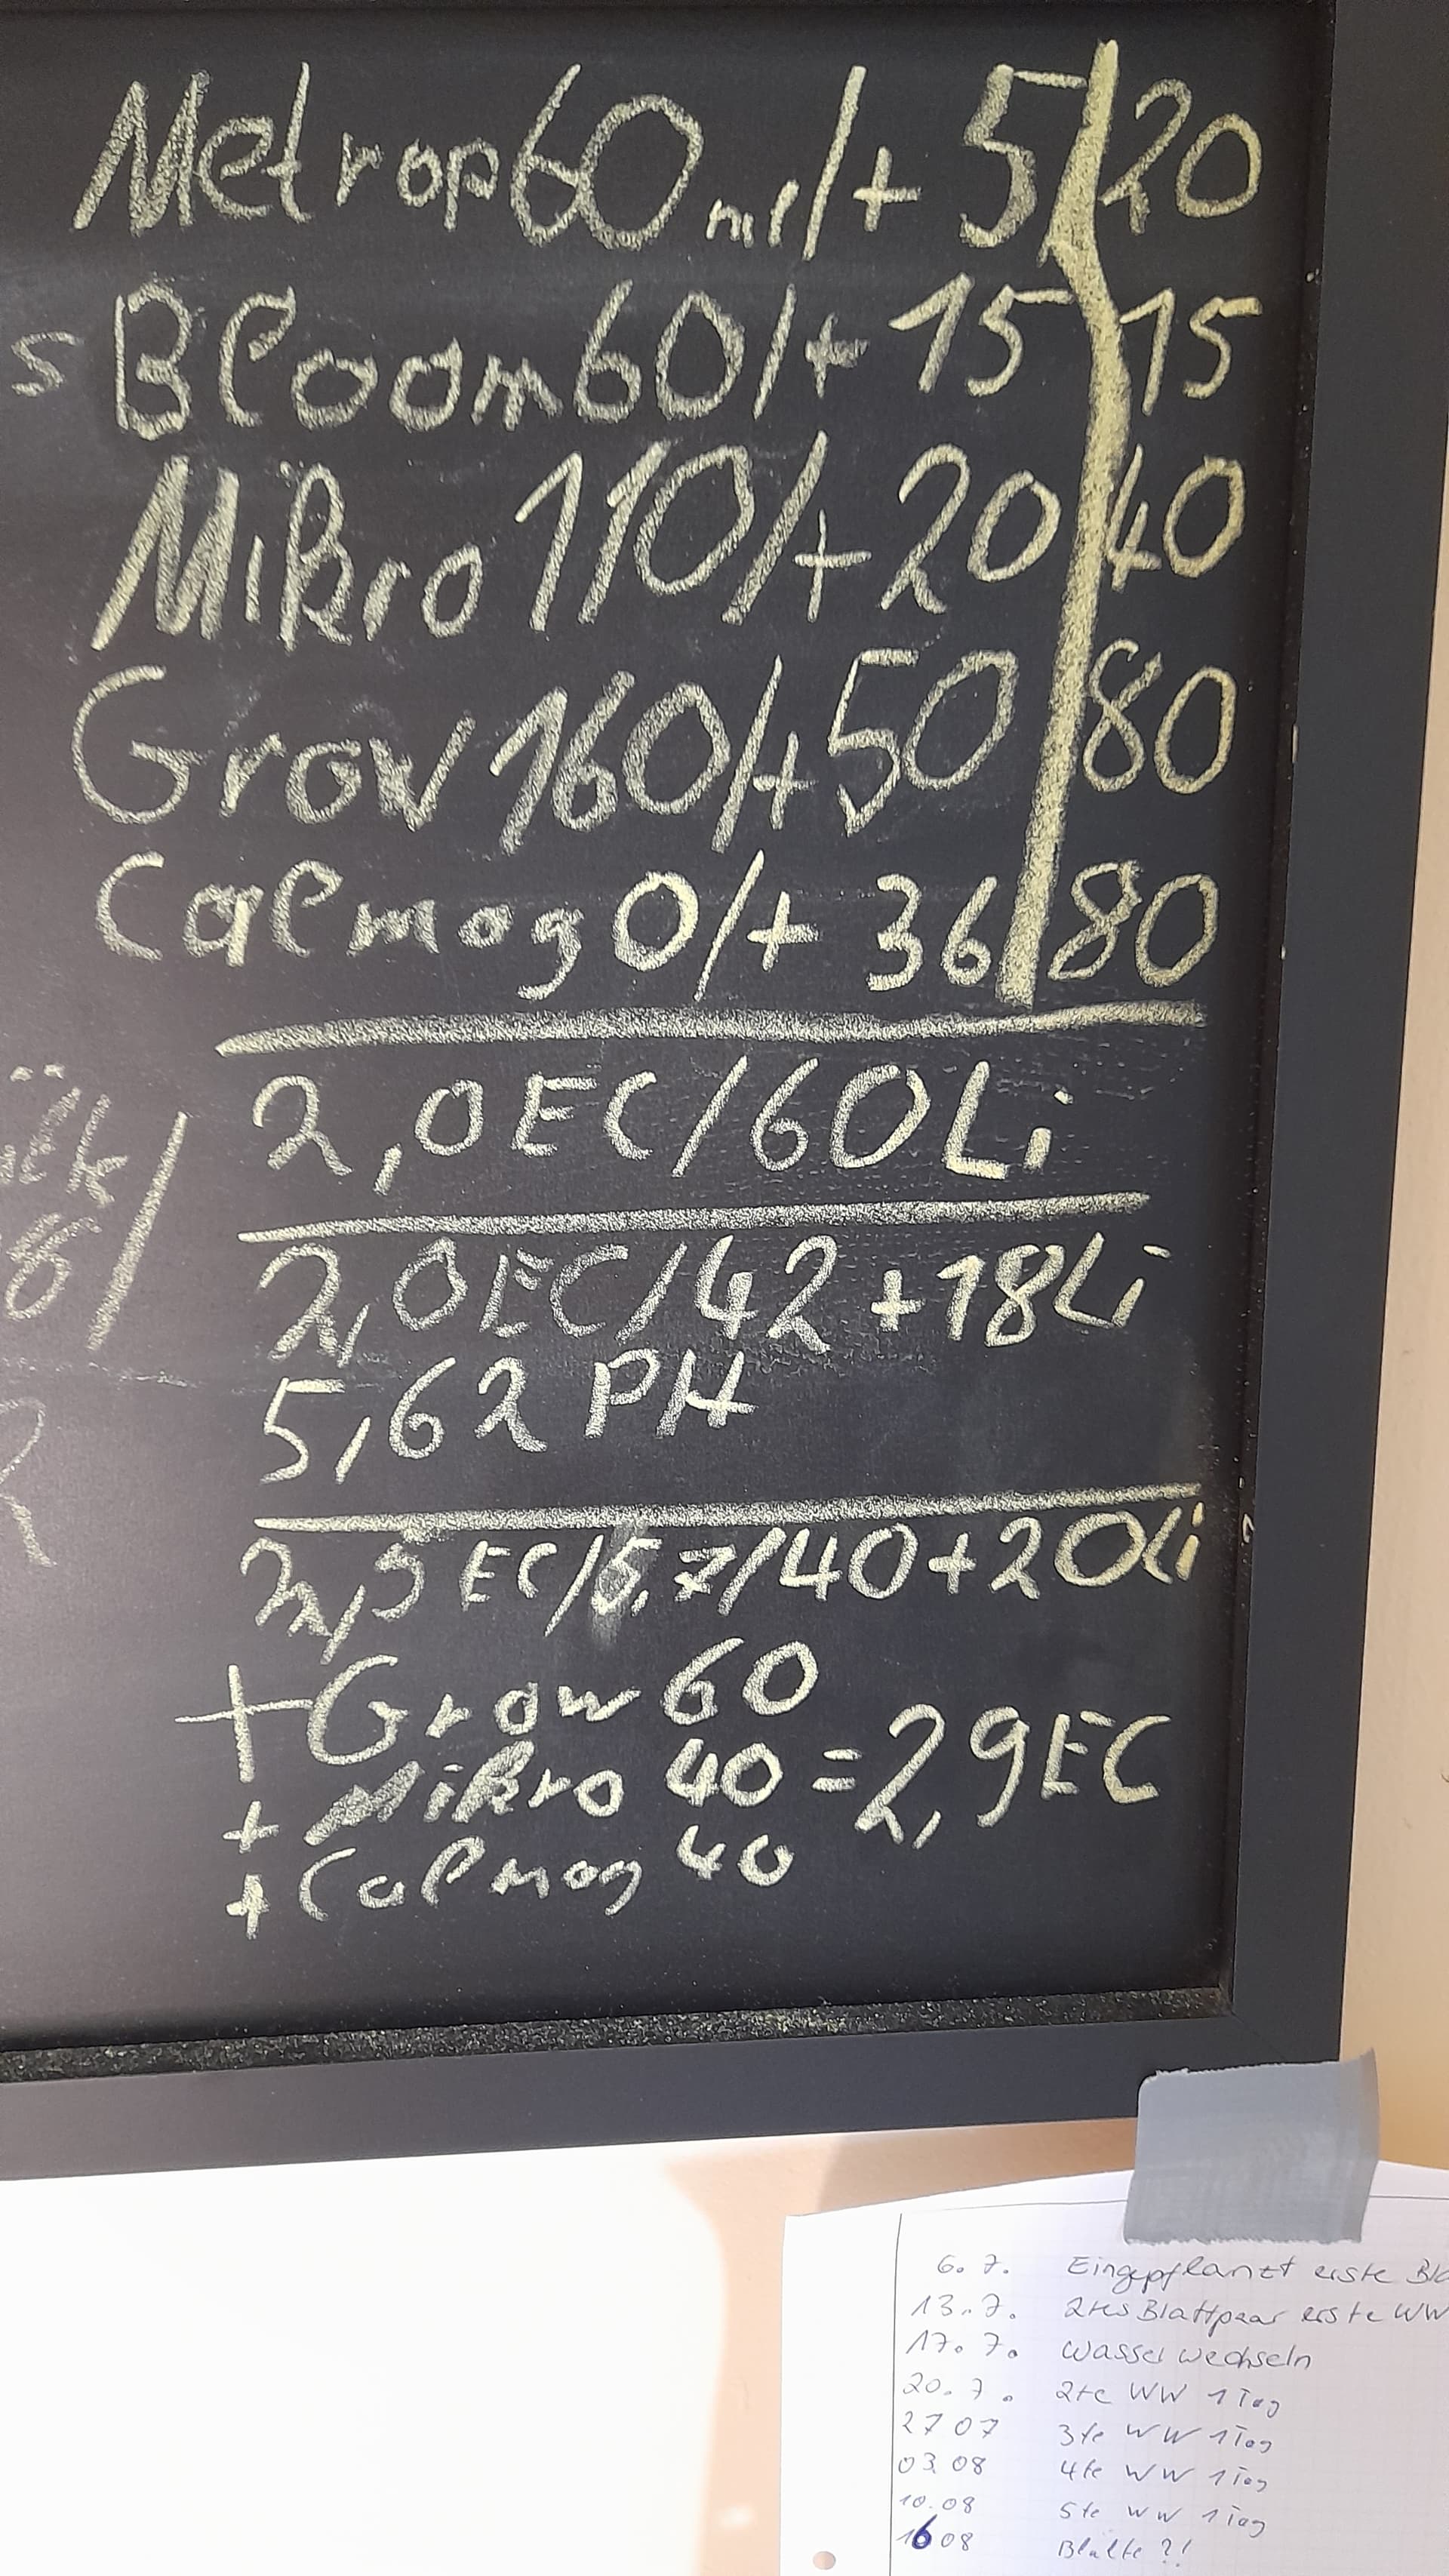 Metrop 60 ml /+ 5 | 20
s
Bloom 60 /+ 15 | 15
Mikro 110 /+ 20 | 40
Grow 160 /+ 50 | 80
Calmag 0 /+ 36 | 80
2,0 EC / 60 Li
2,0 EC / 42 + 18 Li
5,62 PH
EC / 5,7 / 40 + 20 Li
+ Grow 60
+ Mikro 40 = 2,9 EC
+ Calmag 40
6. 7. Eingepflanzt erste
13. 7. 2tes Blattpaar erste WW
17. 7. Wasser wechseln
20. 7. 2te WW 1 Tag
27 07 3te WW 1 Tag
03 08 4te WW 1 Tag
10.08 5te WW 1 Tag
16 08 Blüte ?!